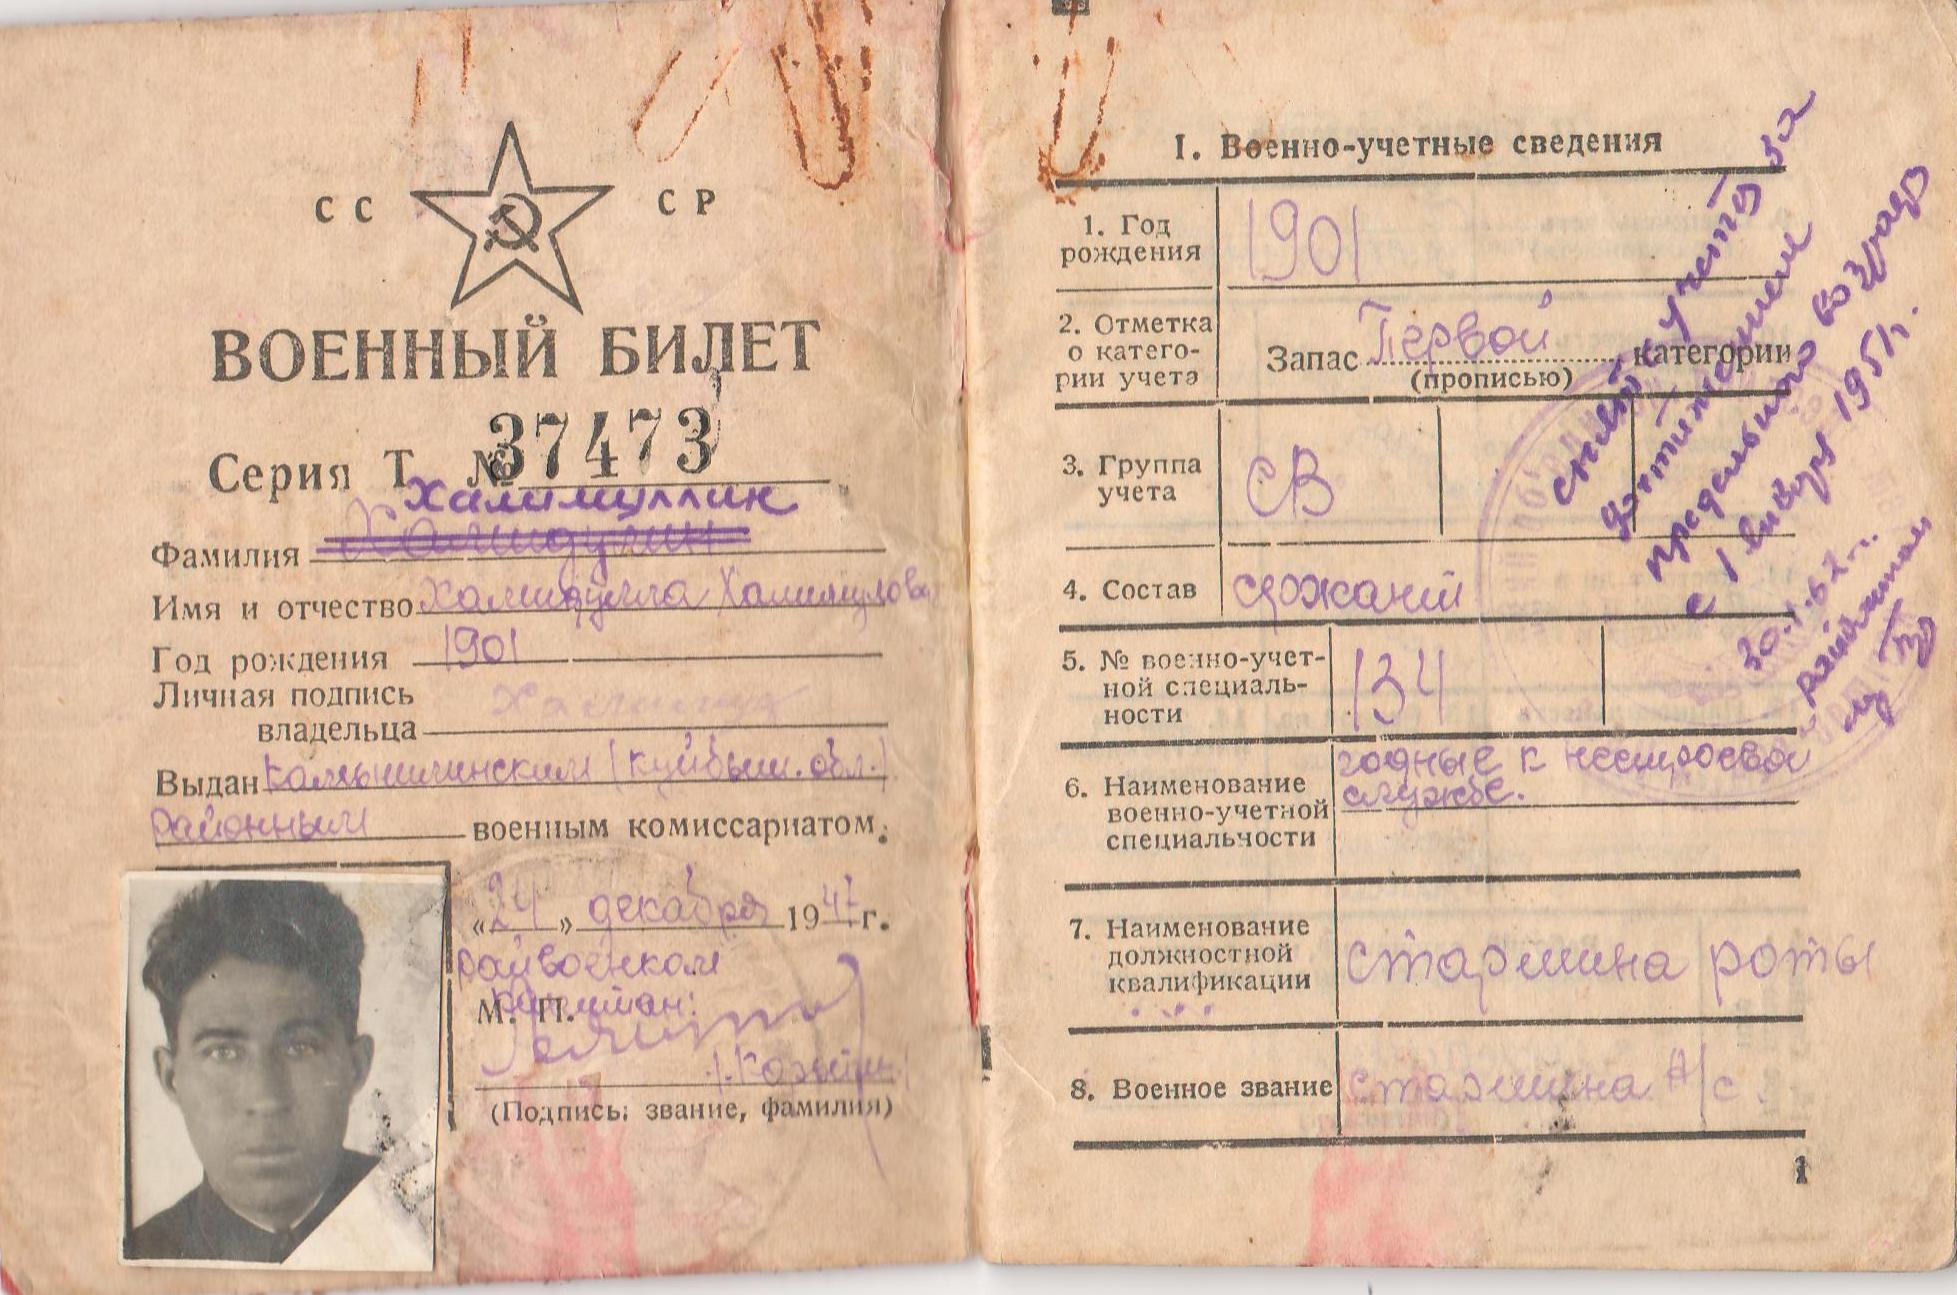 СС СР
ВОЕННЫЙ БИЛЕТ
Серия Т № 37473
Халимуллин
Фамилия Хамидулин
Имя и отчество Хамидулла Халимулович
Год рождения 1901
Личная подпись
владельца
Выдан Камышлинским (Куйбыш. обл.)
районным военным комиссариатом.
«24» декабря 1947 г.
райвоенком
М. П. капитан:
(Подпись, звание, фамилия)
I. Военно-учетные сведения
1. Год
рождения
1901
2. Отметка
о катего-
рии учета
Запас Первой категории
(прописью)
3. Группа
учета
СВ
4. Состав
сержанты
5. № военно-учет-
ной специаль-
ности
134
6. Наименование
военно-учетной
специальности
годные к нестроевой
службе.
7. Наименование
должностной
квалификации
старшина роты
8. Военное звание
старшина А/с.
снят с учета за
достижением
предельного возраста
с 1 января 1951 г.
1